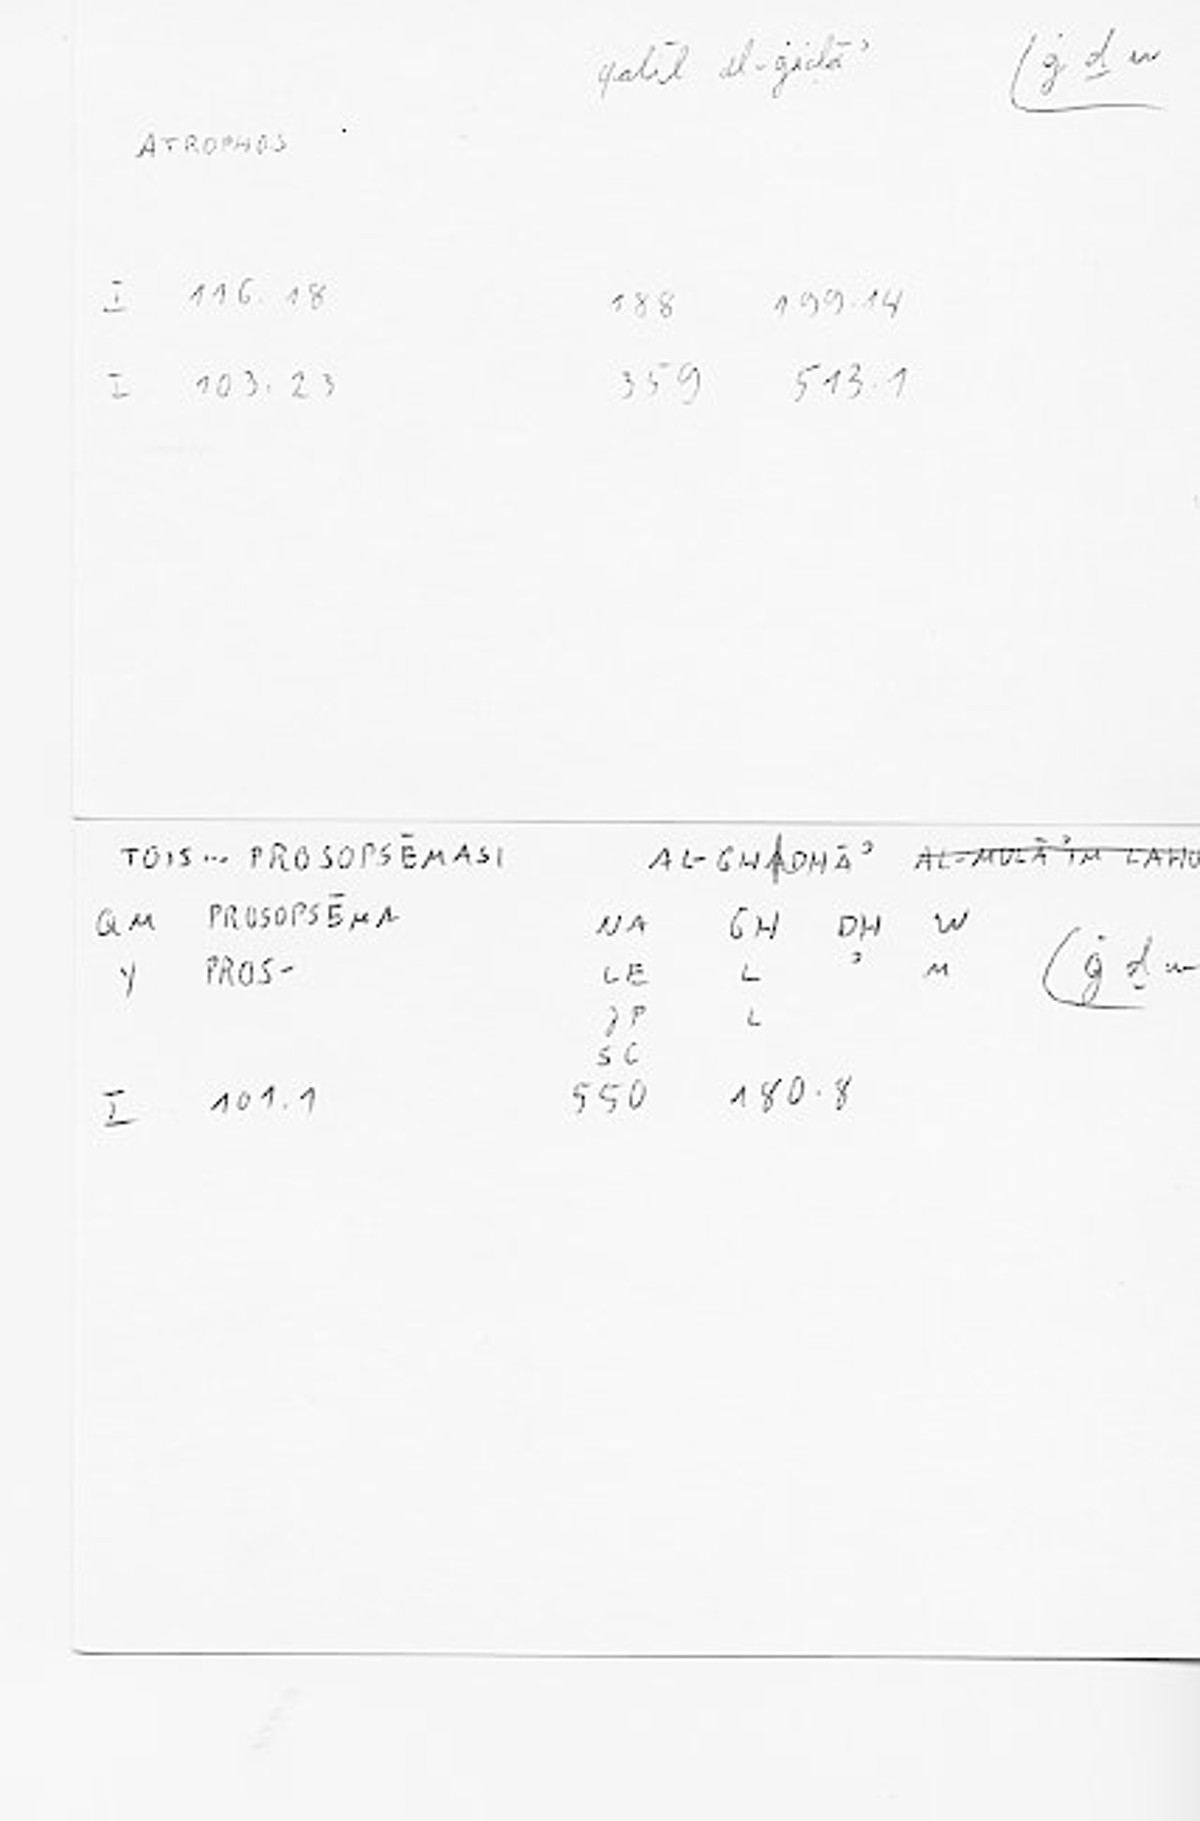 qalīl al-ġiḏāʾ (ġ ḏ w
ATROPHOS
I 116.18 188 199.14
I 103.23 359 513.1
TOIS... PROSOPSĒMASI AL-GHADHĀʾ AL-MULĀʾIM LAHU
QM PROSOPSĒMA NA GH DH W (ġ ḏ w
Y PROS- LE L ʾ M
JP L
SC
I 101.1 550 180.8